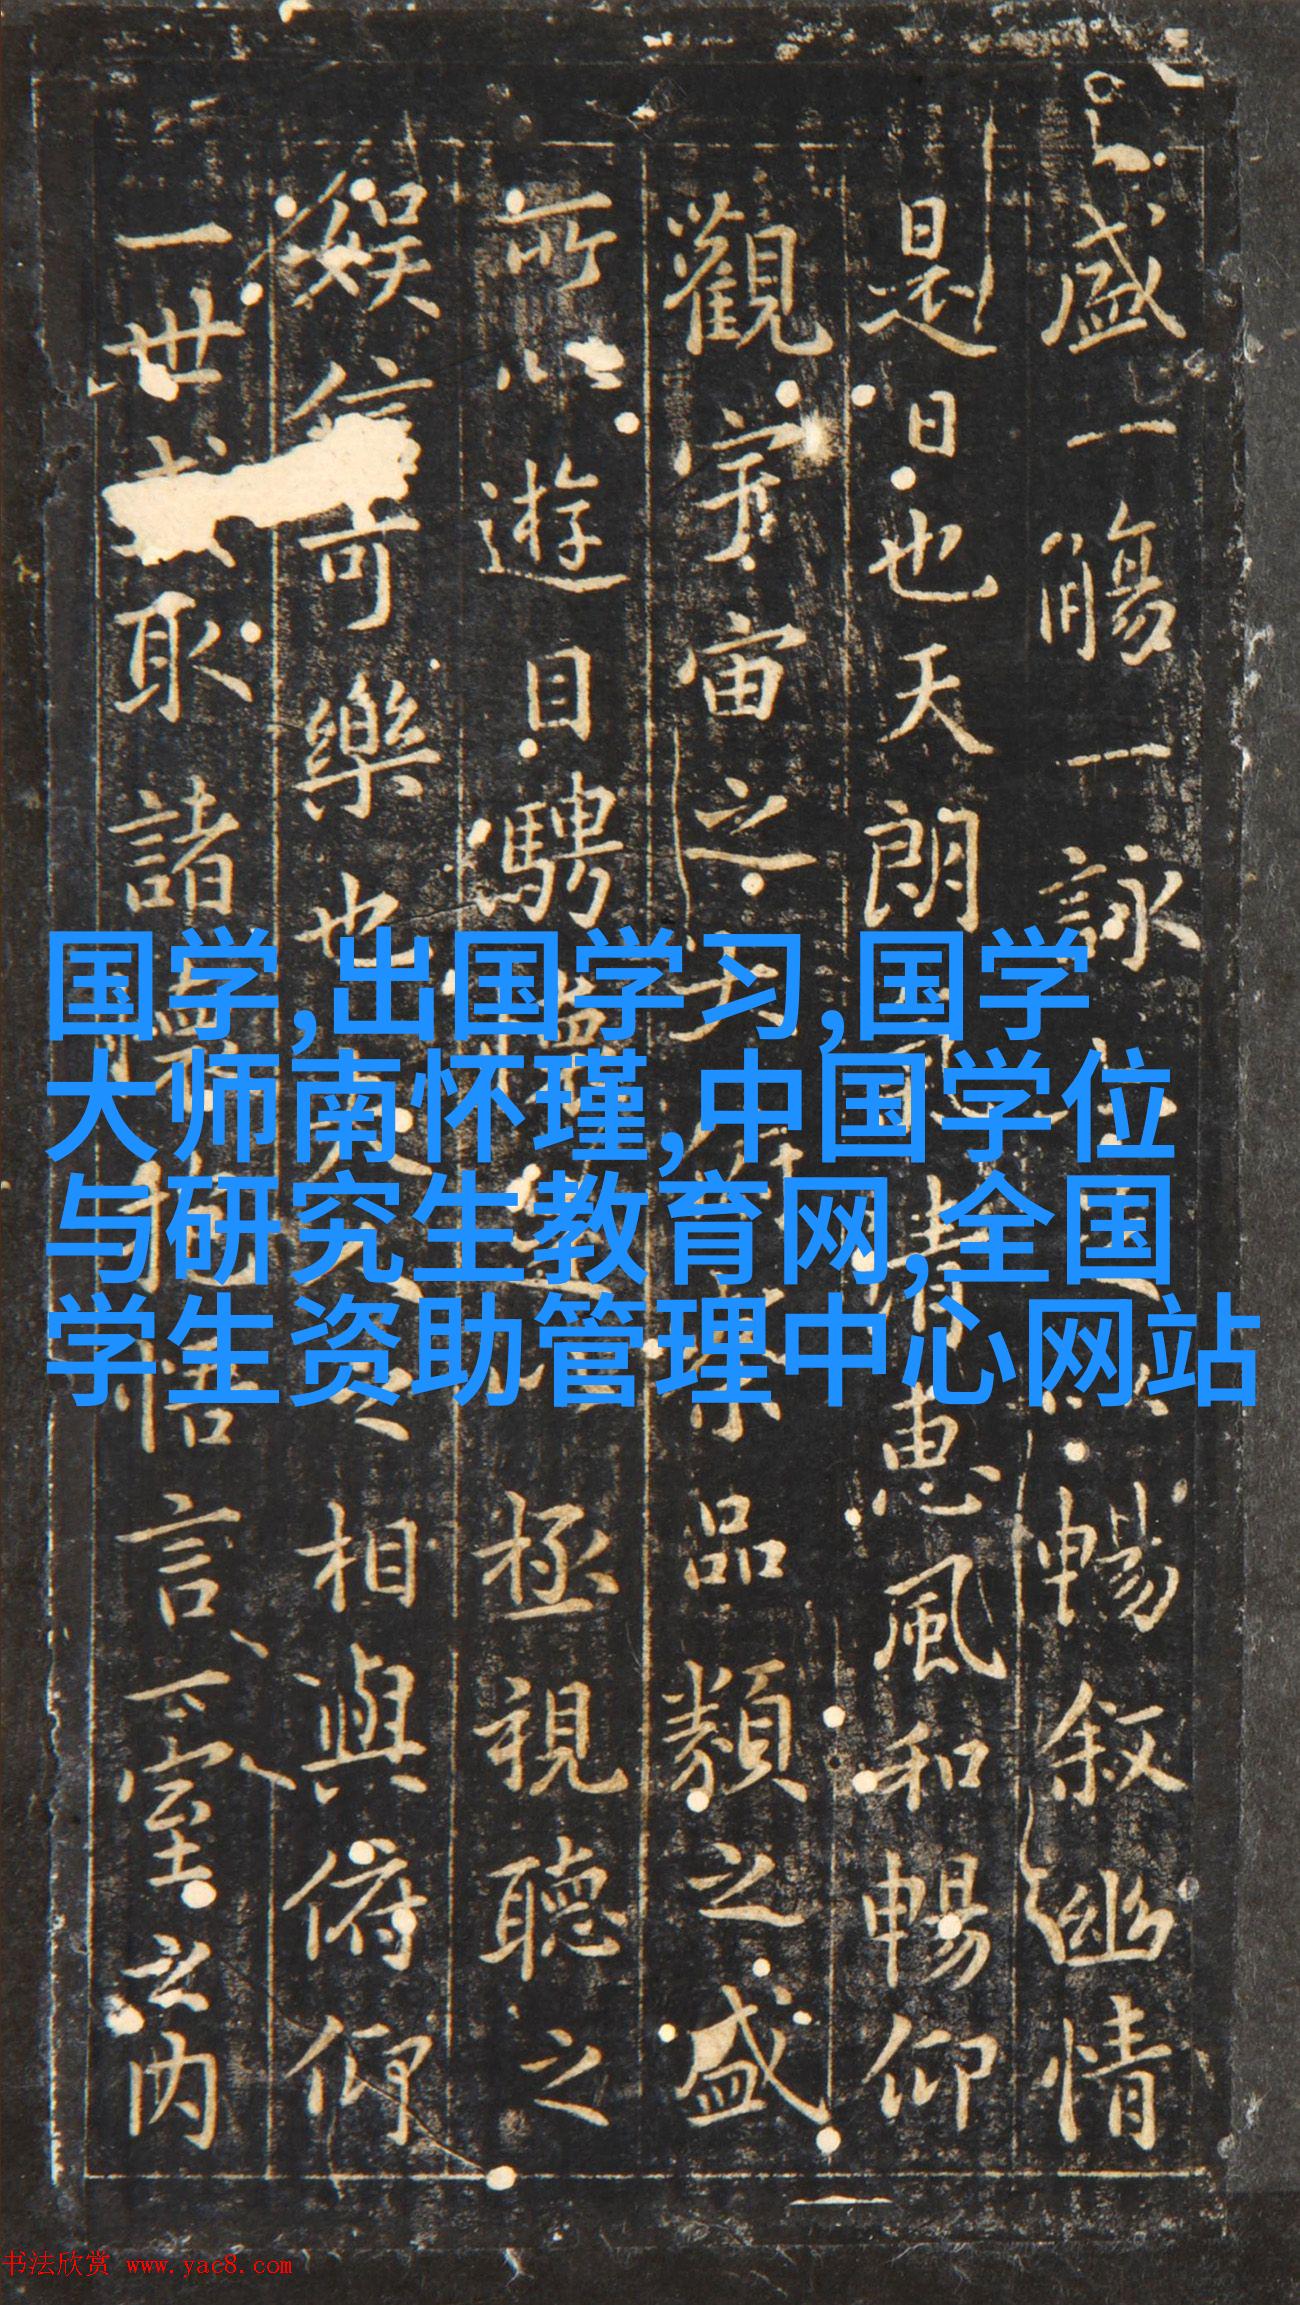 盛一觴一詠亦足以暢叙幽情
是日也天朗氣清惠風和暢仰
觀宇宙之大俯察品類之盛
所以遊目騁懷足以極視聽之
娛信可樂也夫人之相與俯仰
一世或取諸懷抱悟言一室之內
国学,出国学习,国学
大师南怀瑾,中国学位
与研究生教育网,全国
学生资助管理中心网站
书法欣赏 www.yac8.com